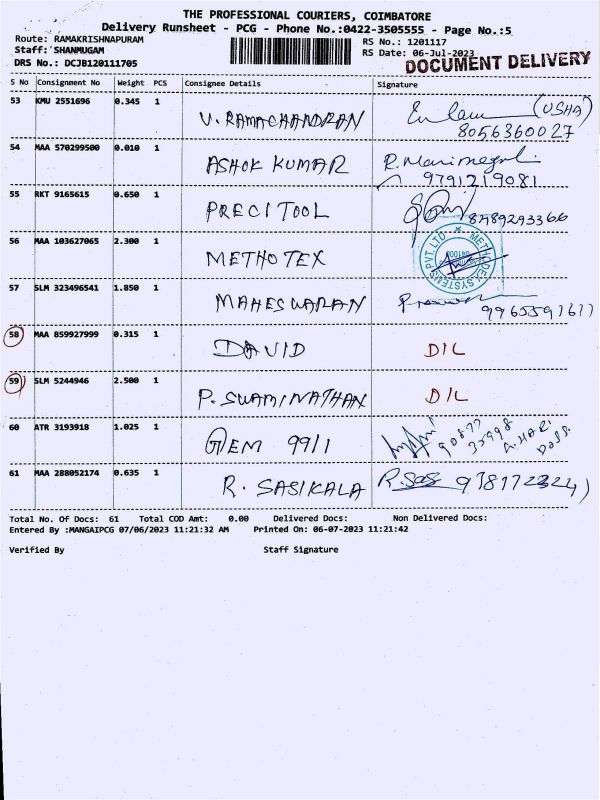 THE PROFESSIONAL COURIERS, COIMBATORE
Delivery Runsheet - PCG - Phone No.:0422-3505555 - Page No.:5
Route: RAMAKRISHNAPURAM RS No.: 1201117
Staff: SHANMUGAM RS Date: 06-Jul-2023
DRS No.: DCJB120111705 DOCUMENT DELIVERY
S No Consignment No Weight PCS Consignee Details Signature
53 KMU 2551696 0.345 1 V. RAMACHANDRAN (USHA)
8056360027
54 MAA 570299500 0.010 1 ASHOK KUMAR
9791219081
55 RKT 9165615 0.650 1 PRECITOOL
56 MAA 103627065 2.300 1 METHOTEX
57 SLM 323496541 1.850 1 MAHESWARAN
9965591617
58 MAA 859927999 0.315 1 DAVID D/L
59 SLM 5244946 2.500 1 P. SWAMINATHAN D/L
60 ATR 3193918 1.025 1 GEM 99/1
61 MAA 288052174 0.635 1 R. SASIKALA R.Sas
Total No. Of Docs: 61 Total COD Amt: 0.00 Delivered Docs: Non Delivered Docs:
Entered By :MANGAIPCG 07/06/2023 11:21:32 AM Printed On: 06-07-2023 11:21:42
Verified By Staff Signature